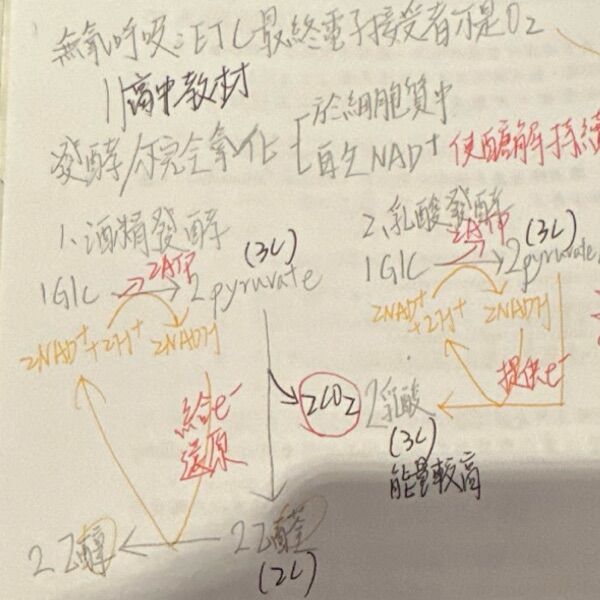 無氧呼吸：ETC最終電子接受者不是O₂
||高中教材
發酵/不完全氧化
於細胞質中
再生NAD⁺ 使醣解持續
1.酒精發酵
(3C)
2ATP
1Glc → 2pyruvate
2NAD⁺+2H⁺ 2NADH
給e⁻
還原
2CO₂
2乙醇 ← 2乙醛
(2C)
2.乳酸發酵
2ATP
(3C)
1Glc → 2pyruvate
2NAD⁺
+2H⁺ 2NADH
提供e⁻
2乳酸
(3C)
能量較高